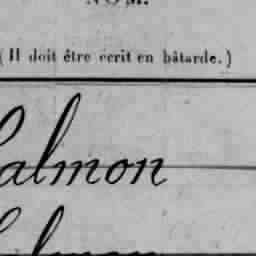 NOM.
(Il doit être écrit en bâtarde.)
Salmon
Salmon